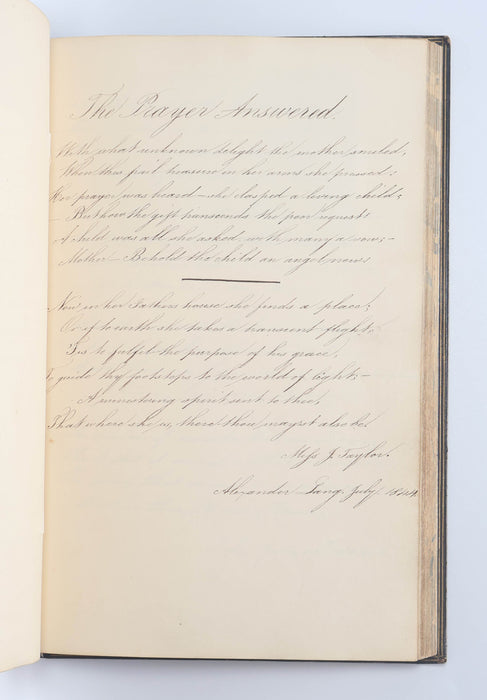 The Prayer Answered.
With what unknown delight the mother smiled,
When this frail treasure in her arms she pressed;
Her prayer was heard – she clasped a living child;
– But how the gift transcends the poor request!
A child was all she asked, with many a vow; –
Mother – Behold the child an angel now!
Now in her Fathers house she finds a place;
Or if to earth she takes a transient flight,
Tis to fulfil the purpose of his grace,
To guide thy footsteps to the world of light; –
A ministering spirit sent to thee,
That where she is, there thou mayst also be.
Miss J. Taylor.
Alexander Lang. July.